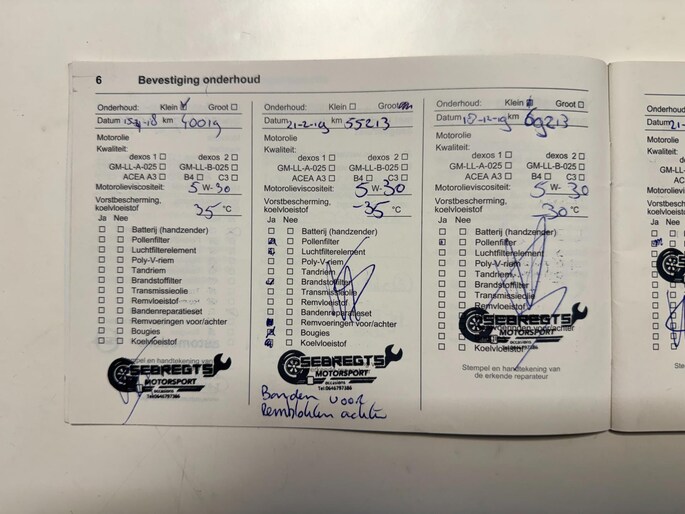 6 Bevestiging onderhoud
Onderhoud: Klein Groot
Datum 18 km 40019
Motorolie
Kwaliteit:
dexos 1 dexos 2
GM-LL-A-025 GM-LL-B-025
ACEA A3 B4 C3
Motorolieviscositeit: 5 W- 30
Vorstbescherming,
koelvloeistof 35 °C
Ja Nee
Batterij (handzender)
Pollenfilter
Luchtfilterelement
Poly-V-riem
Tandriem
Brandstoffilter
Transmissieolie
Remvloeistof
Bandenreparatieset
Remvoeringen voor/achter
Bougies
Koelvloeistof
Stempel en handtekening van
SEBREGTS
MOTORSPORT
OCCASIONS
Tel:0646797386
Onderhoud: Klein Groot
Datum 21-2-19 km 55213
Motorolie
Kwaliteit:
dexos 1 dexos 2
GM-LL-A-025 GM-LL-B-025
ACEA A3 B4 C3
Motorolieviscositeit: 5 W-30
Vorstbescherming,
koelvloeistof -35 °C
Ja Nee
Batterij (handzender)
Pollenfilter
Luchtfilterelement
Poly-V-riem
Tandriem
Brandstoffilter
Transmissieolie
Remvloeistof
Bandenreparatieset
Remvoeringen voor/achter
Bougies
Koelvloeistof
SEBREGTS
MOTORSPORT
OCCASIONS
Tel:0646797386
Banden voor
remblokken achter
Onderhoud: Klein Groot
Datum 18-12-19 km 69213
Motorolie
Kwaliteit:
dexos 1 dexos 2
GM-LL-A-025 GM-LL-B-025
ACEA A3 B4 C3
Motorolieviscositeit: 5 W- 30
Vorstbescherming,
koelvloeistof -30 °C
Ja Nee
Batterij (handzender)
Pollenfilter
Luchtfilterelement
Poly-V-riem
Tandriem
Brandstoffilter
Transmissieolie
Remvloeistof
SEBREGTS
voeringen voor/achter
MOTORSPORT
Koelvloeistof
Stempel en handtekening van
de erkende reparateur
Onderhoud:
Datum 21-
Motorolie
Kwaliteit:
Motorolieviscos
Vorstbescherm
koelvloeistof
Ja Nee